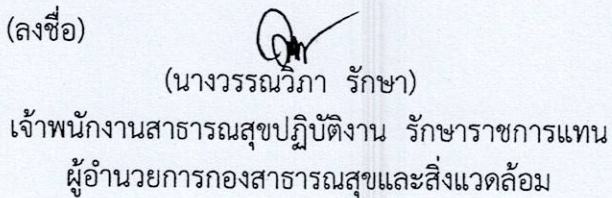 (ลงชื่อ)
(นางวรรณวิภา รักษา)
เจ้าพนักงานสาธารณสุขปฏิบัติงาน รักษาราชการแทน
ผู้อำนวยการกองสาธารณสุขและสิ่งแวดล้อม